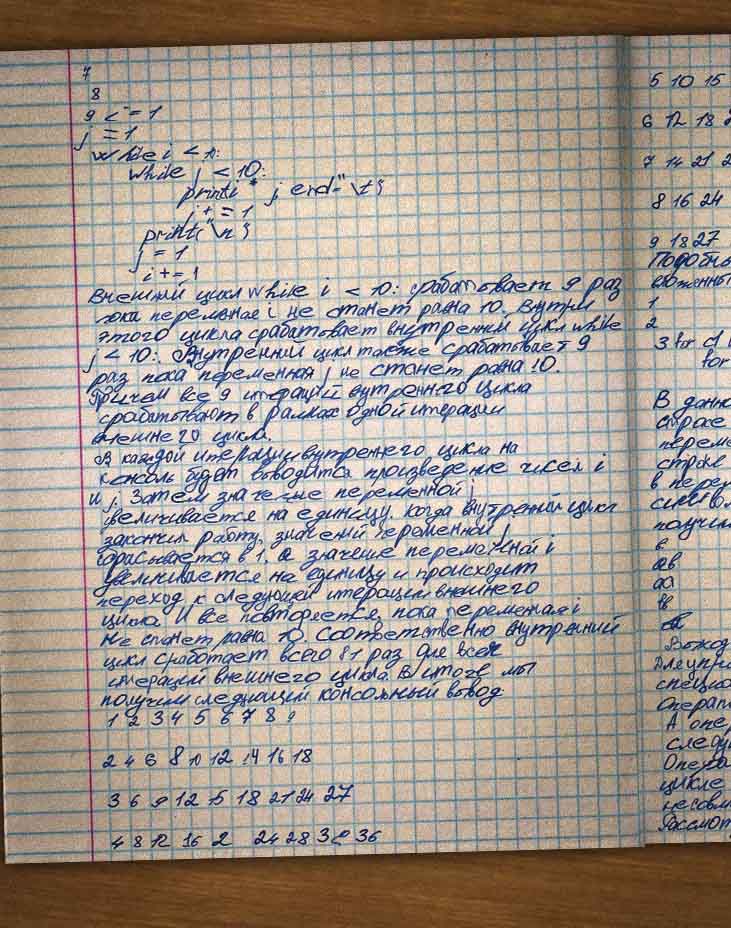 7
8
9 i = 1
j = 1
while i < 10:
while j < 10:
print(i * j, end="\t")
j += 1
print("\n")
j = 1
i += 1
Внешний цикл while i < 10: срабатывает 9 раз
пока переменная i не станет равна 10. Внутри
этого цикла срабатовает внутренний цикл while
j < 10: Внутренний цикл также срабатывает 9
раз пока переменная j не станет равна 10.
Причем все 9 итераций внутреннего цикла
срабатывают в рамках одной итерации
внешнего цикла.
В каждой итерации внутреннего цикла на
консоль будет воводится произведение чисел i
и j. Затем значение переменной j
увеличивается на единицу. когда внутренний цикл
закончил работу, значений переменной j
сбрасывается в 1, а значение переменной i
увеличивается на единицу и происходит
переход к следующей итерации внешнего
цикла. И все повторяется, пока переменная i
не станет равна 10. Соответственно внутренний
цикл сработает всего 81 раз для всех
итераций внешнего цикла. В итоге мы
получим следующий консольный вывод:
1 2 3 4 5 6 7 8 9
2 4 6 8 10 12 14 16 18
3 6 9 12 15 18 21 24 27
4 8 12 16 2 24 28 32 36
5 10 15
6 12 18 2
7 14 21 2
8 16 24
9 18 27
Подобны
вложенны
1
2
3 for c1 i
for
В данно
строке
переме
строке
в перем
символ
получим
ав
аа
Выход
Для упра
специа
операт
А опер
следую
Опера
цикле
несовм
Рассмот